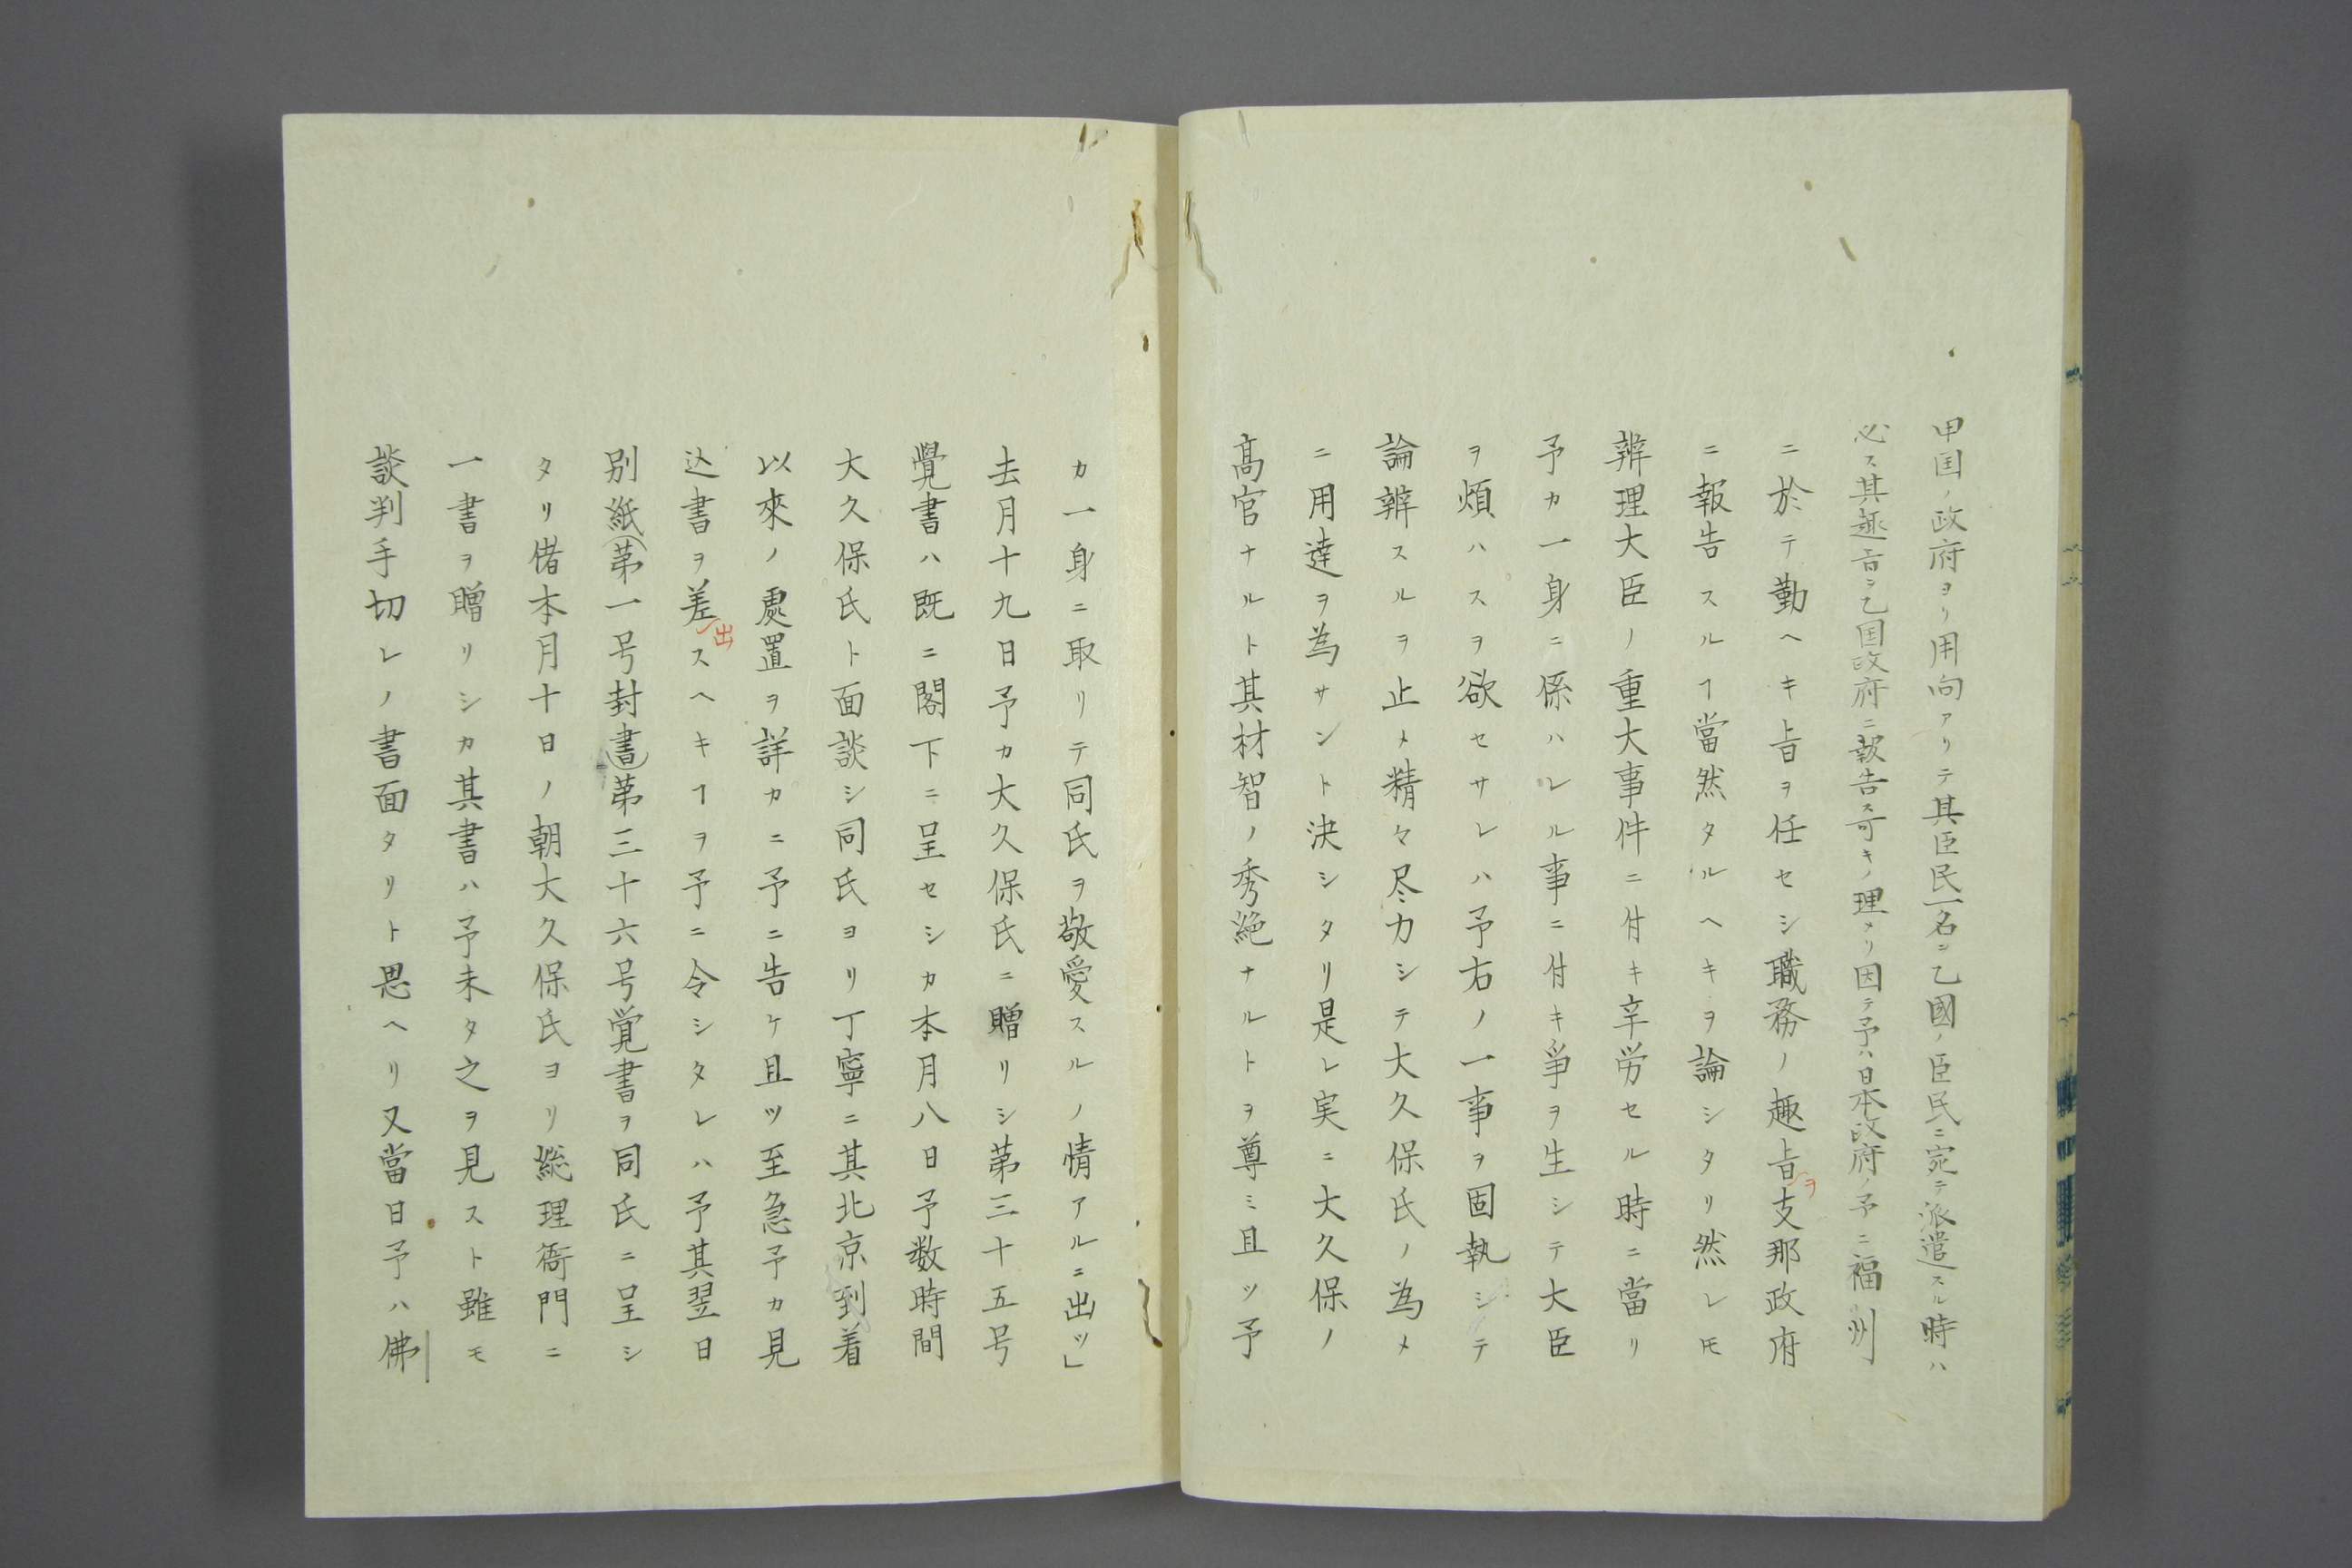 甲国ノ政府ヨリ用向アリテ其臣民一名ニ乙國ノ臣民ニ宛テ派遣スル時ハ
必ス其趣旨ヲ乙国政府ニ報告ス可キノ理メリ因テ予ハ日本政府ノ予ニ福州
ニ於テ勤ヘキ旨ヲ任セシ職務ノ趣旨ヲ支那政府
ニ報告スルヿ當然タルヘキヲ論シタリ然レ𪜈
辨理大臣ノ重大事件ニ付キ辛労セル時ニ當リ
予カ一身ニ係ハレル事ニ付キ爭ヲ生シテ大臣
ヲ煩ハスヲ欲セサレハ予右ノ一事ヲ固執シテ
論辨スルヲ止メ精々尽力シテ大久保氏ノ為メ
ニ用達ヲ為サント決シタリ是レ実ニ大久保ノ
髙官ナルト其材智ノ秀絶ナルトヲ尊ミ且ツ予
カ一身ニ取リテ同氏ヲ敬愛スルノ情アルニ出ツ」
去月十九日予カ大久保氏ニ贈リシ第三十五号
覺書ハ既ニ閣下ニ呈セシカ本月八日予数時間
大久保氏ト面談シ同氏ヨリ丁寧ニ其北京到着
以來ノ處置ヲ詳カニ予ニ告ケ且ツ至急予カ見
込書ヲ差出スヘキヿヲ予ニ令シタレハ予其翌日
別紙(第一号封書)第三十六号覚書ヲ同氏ニ呈シ
タリ偖本月十日ノ朝大久保氏ヨリ総理衙門ニ
一書ヲ贈リシカ其書ハ予未タ之ヲ見スト雖モ
談判手切レノ書面タリト思ヘリ又當日予ハ佛